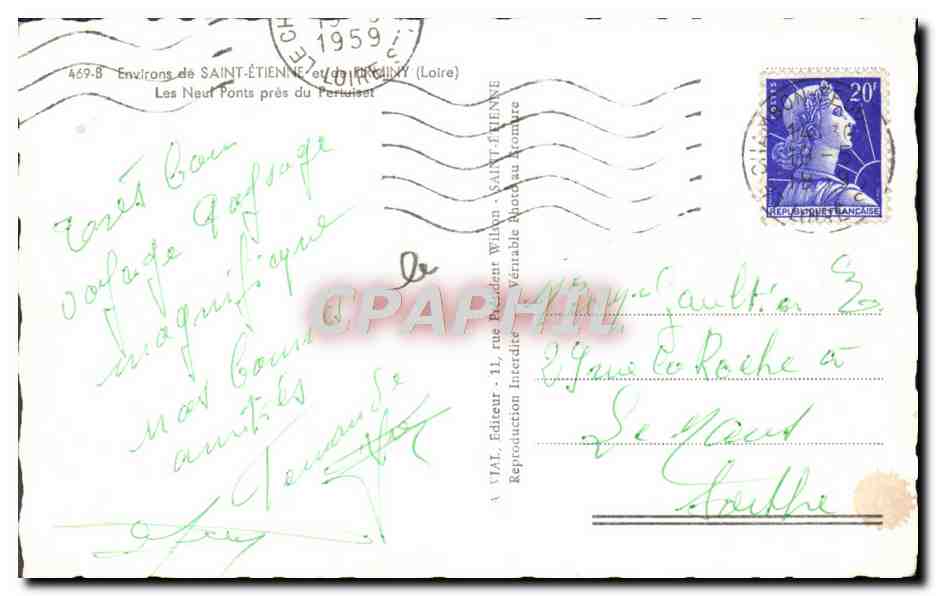 1959
LE CH
LOIRE
469-B Environs de SAINT-ÉTIENNE et de FIRMINY (Loire)
Les Neuf Ponts près du Pertuiset
POSTES
20F
REPUBLIQUE FRANÇAISE
Très bon
voyage Paysage
magnifique
nos bons
amitiés
Fernande
le
A VIAL, Editeur - 11, rue Président Wilson - SAINT-ÉTIENNE
Reproduction Interdite - Véritable Photo au Bromure
Gaultier
29 rue La Roche à
Le Mans
Sarthe
CPAPHIL